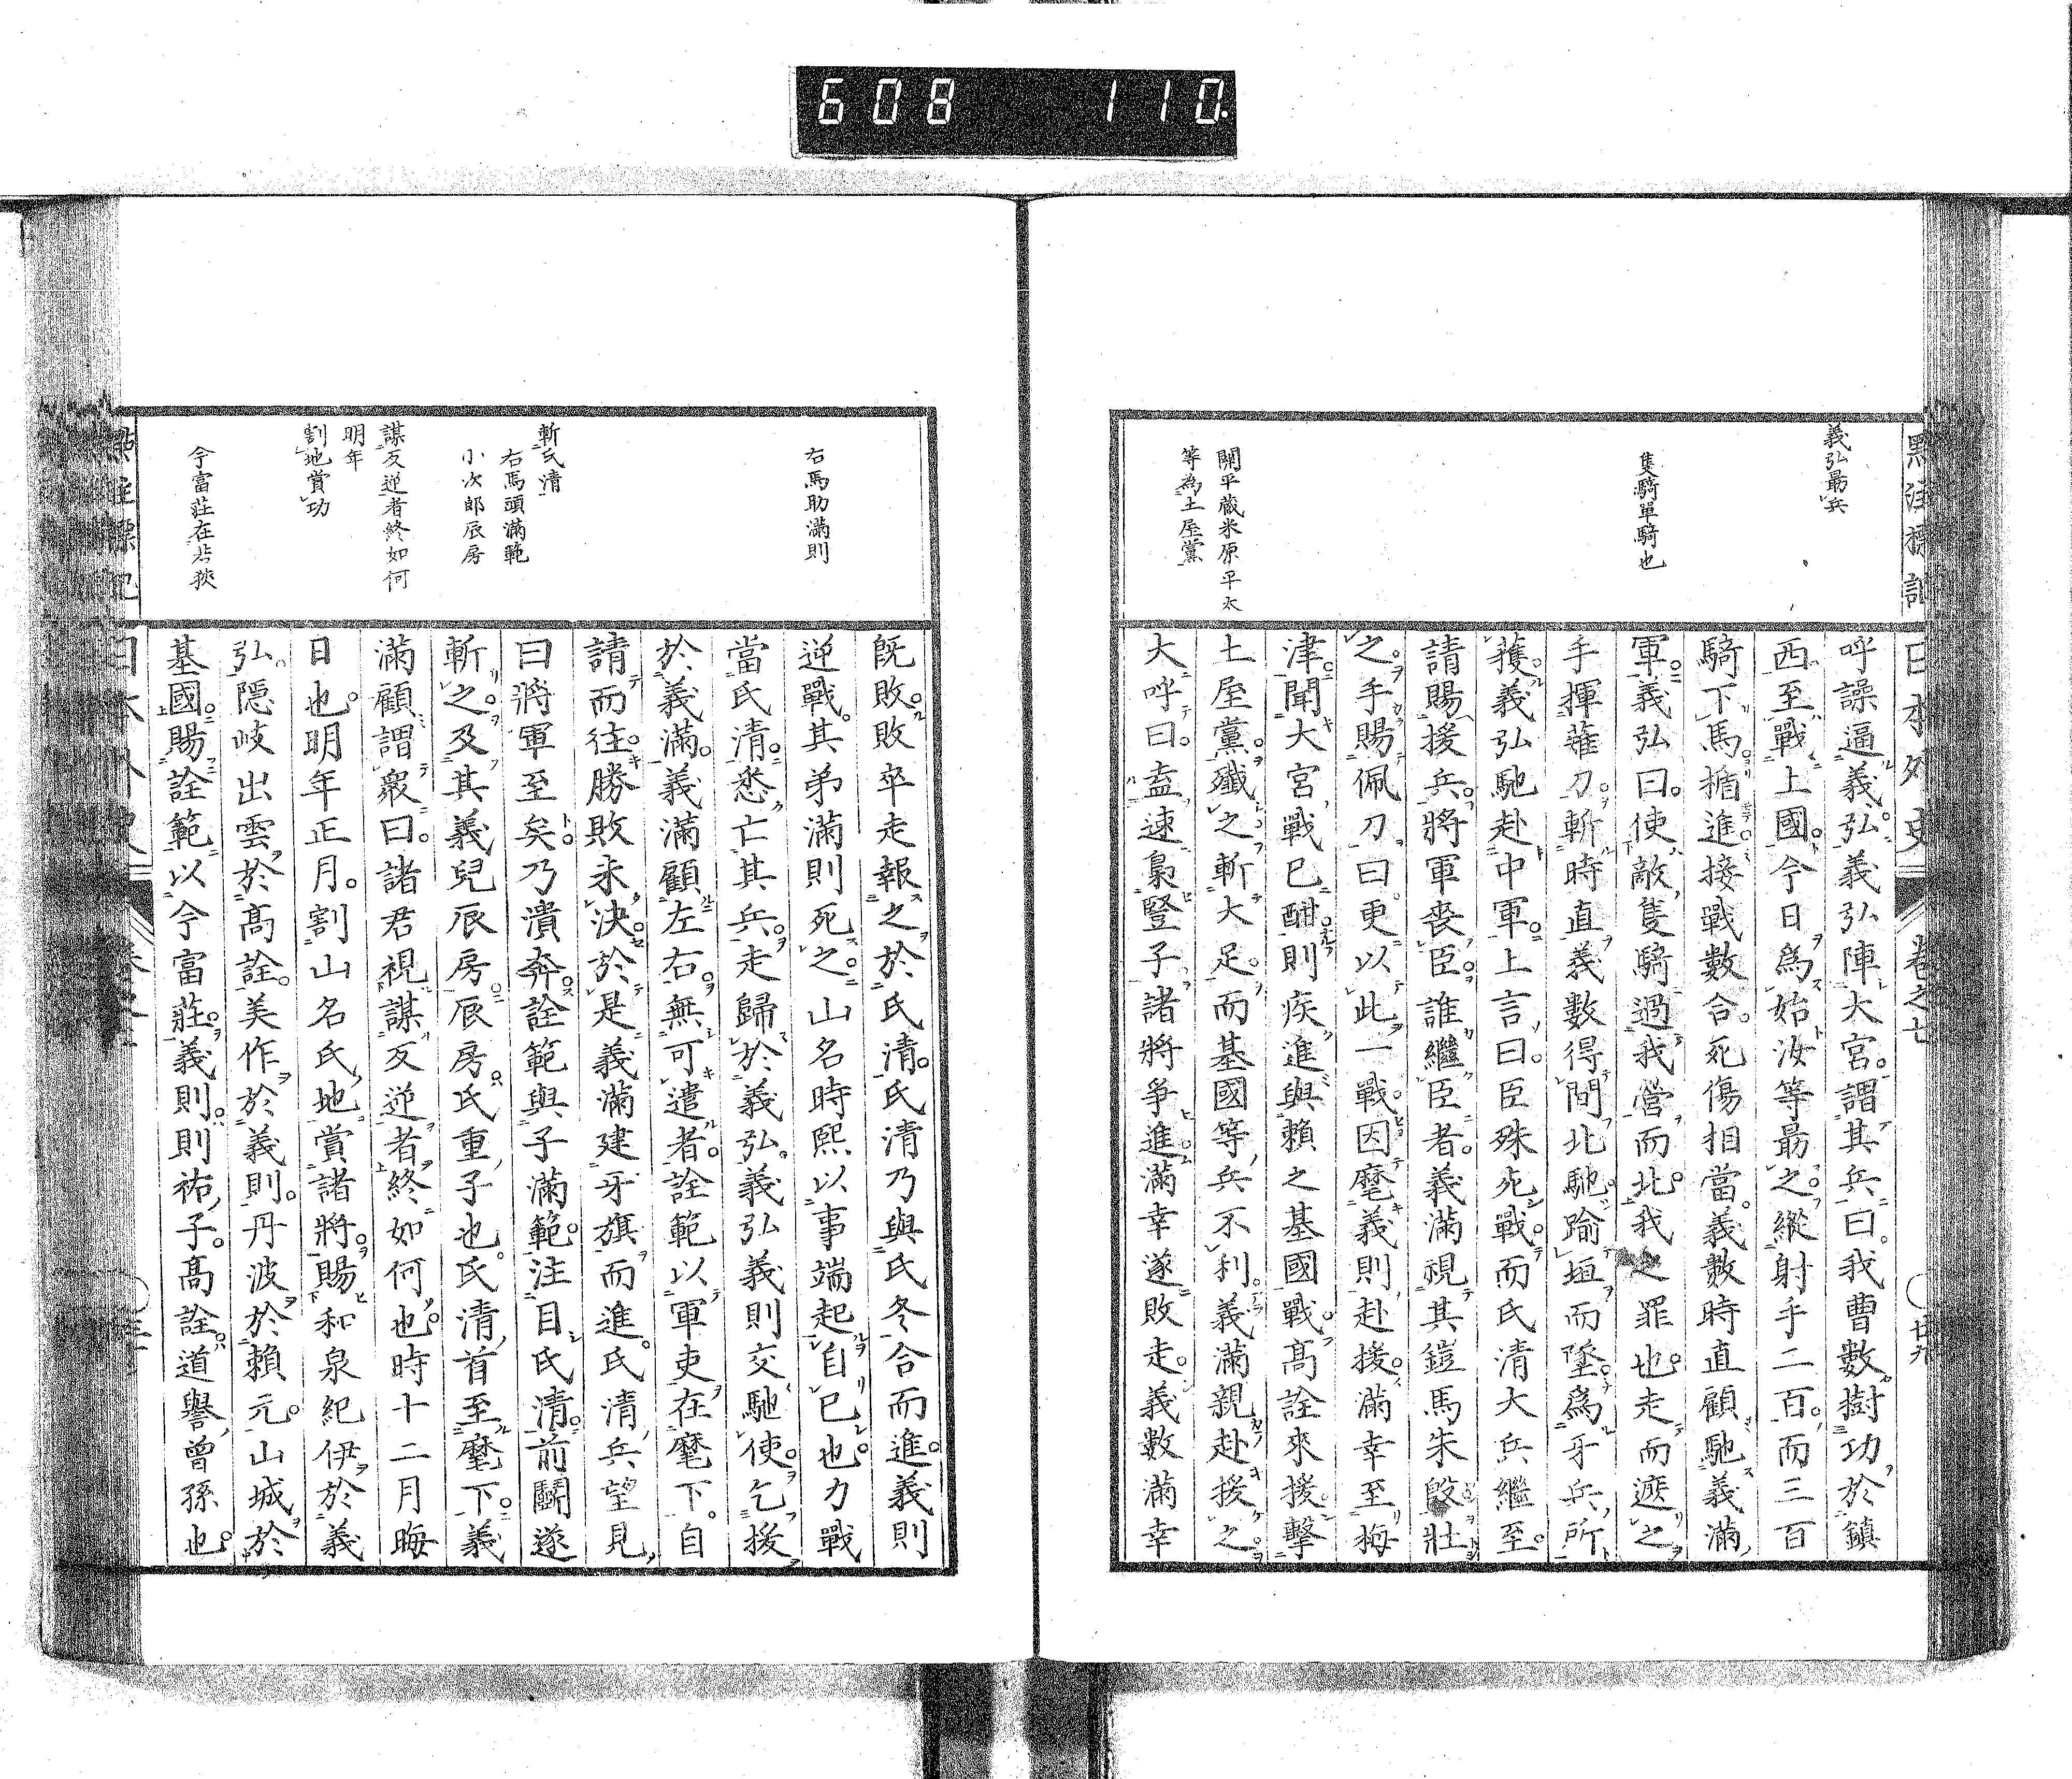 608 110.
點注標記
日本外史 卷之七 〇 廿九
義弘最兵
隻騎單騎也
關平藏米原平太
等為土屋黨
呼譟逼義弘。義弘陣大宮。謂其兵曰。我曹數樹功於鎮
西。至戰上國。今日爲始。汝等最之。縱射手二百。而三百
騎下馬。揗進。接戰數合。死傷相當。義數時直顧馳義滿
軍。義弘曰。使敵隻騎過我營而北。我之罪也。走而遮之。
手揮薙刀。斬時直。義數得間北馳。踰垣而墜。爲牙兵所
獲。義弘馳赴中軍。上言曰。臣殊死戰。而氏清大兵繼至。
請賜援兵。將軍喪臣。誰繼臣者。義滿視其鎧馬朱殷。壯
之。手賜佩刀曰。更以此一戰。因麾義則赴援。滿幸至梅
津。聞大宮戰已酣。則疾進與賴之基國戰。高詮來援。擊
土屋黨。殲之。斬大足。而基國等兵不利。義滿親赴援之。
大呼曰。盍速梟豎子。諸將爭進。滿幸遂敗走。義數滿幸
右馬助滿則
斬氏清
右馬頭滿範
小次郎辰房
謀反逆者終如何
明年
割地賞功
今富莊在若狹
既敗。敗卒走報之於氏清。氏清乃與氏冬合而進。義則
逆戰。其弟滿則死之。山名時熙以事端起自已也。力戰
當氏清。悉亡其兵。走歸於義弘。義弘義則交馳使。乞援
於義滿。義滿顧左右。無可遣者。詮範以軍吏在麾下。自
請而往。勝敗未決。於是義滿建牙旗而進。氏清兵望見
曰將軍至矣。乃潰奔。詮範與子滿範。注目氏清。前鬪遂
斬之。及其義兒辰房。辰房。氏重子也。氏清首至麾下。義
滿顧謂衆曰。諸君視謀反逆者。終如何也。時十二月晦
日也。明年正月。割山名氏地。賞諸將。賜和泉紀伊於義
弘。隱岐出雲於高詮。美作於義則。丹波於賴元。山城於
基國。賜詮範以今富莊。義則。則祐子。高詮。道譽曾孫也。
點注標記
日本外史